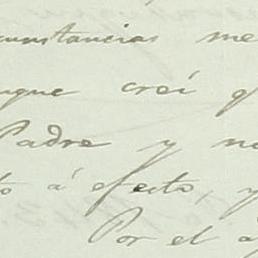 cunstancias me
nque creí q
Padre y no
to á efecto, y
Por el a